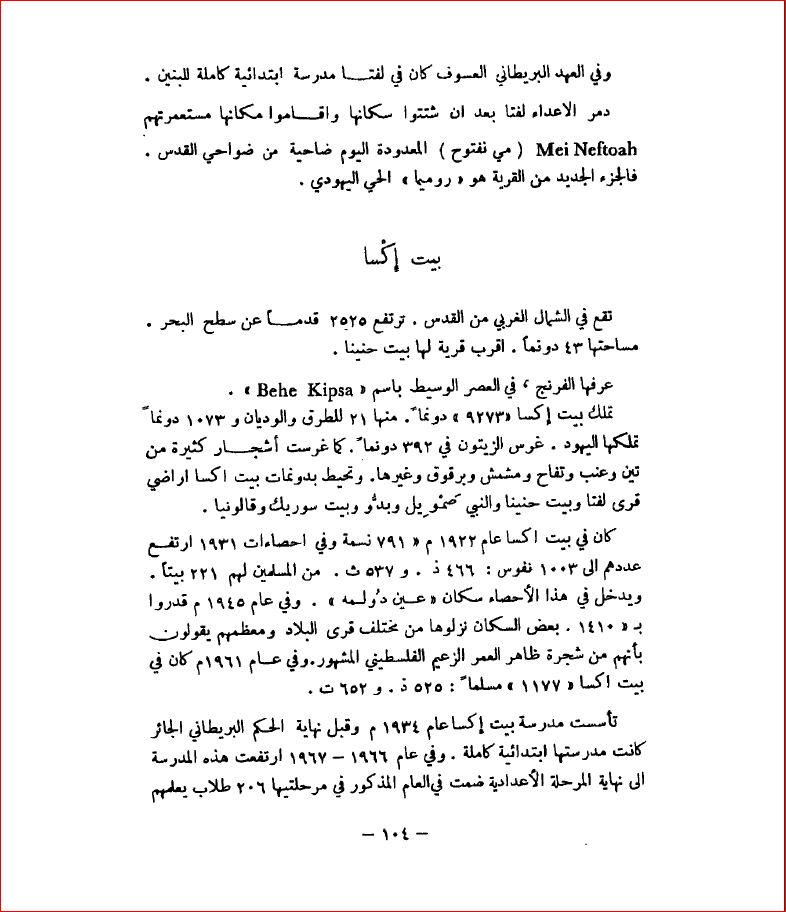 وفي العهد البريطاني العسوف كان في لفتا مدرسة ابتدائية كاملة للبنين .
دمر الاعداء لفتا بعد ان شتتوا سكانها واقاموا مكانها مستعمرتهم
Mei Neftoah ( مي نفتوح ) المعدودة اليوم ضاحية من ضواحي القدس .
فالجزء الجديد من القرية هو « روميما » الحي اليهودي .
بيت إكْسا
تقع في الشمال الغربي من القدس . ترتفع ٢٥٢٥ قدماً عن سطح البحر .
مساحتها ٤٣ دونماً . اقرب قرية لها بيت حنينا .
عرفها الفرنج ، في العصر الوسيط باسم « Behe Kipsa » .
تملك بيت إكسا «٩٢٧٣ » دونماً. منها ٢١ للطرق والوديان و ١٠٧٣ دونماً
تملكها اليهود . غرس الزيتون في ٣٩٢ دونماً. كما غرست أشجار كثيرة من
تين وعنب وتفاح ومشمش وبرقوق وغيرها. وتحيط بدونمات بيت اكسا اراضي
قرى لفتا وبيت حنينا والنبي صَمْوِيل وبدُّو وبيت سوريك وقالونيا .
كان في بيت اكسا عام ١٩٢٢ م « ٧٩١ نسمة وفي احصاءات ١٩٣١ ارتفع
عددهم الى ١٠٠٣ نفوس : ٤٦٦ ذ . و ٥٣٧ ث . من المسلمين لهم ٢٢١ بيتاً .
ويدخل في هذا الأحصاء سكان « عين دُولمه » . وفي عام ١٩٤٥ م قدروا
بـ « ١٤١٠ . بعض السكان نزلوها من مختلف قرى البلاد ومعظمهم يقولون
بأنهم من شجرة ظاهر العمر الزعيم الفلسطيني المشهور.وفي عام ١٩٦١م كان في
بيت اكسا « ١١٧٧ » مسلماً : ٥٢٥ ذ . و ٦٥٢ ت .
تأسست مدرسة بيت إكسا عام ١٩٣٤ م وقبل نهاية الحكم البريطاني الجائر
كانت مدرستها ابتدائية كاملة . وفي عام ١٩٦٦ – ١٩٦٧ ارتفعت هذه المدرسة
الى نهاية المرحلة الأعدادية ضمت في العام المذكور في مرحلتيها ٢٠٦ طلاب يعلمهم
– ١٠٤ –